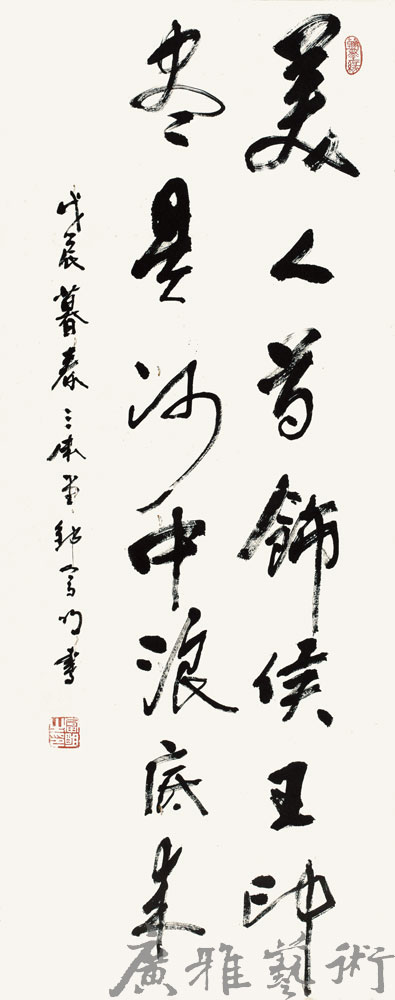 美人首飾侯王印
尽是沙中浪底来
戊辰暮春三堂明書
廣雅藝術